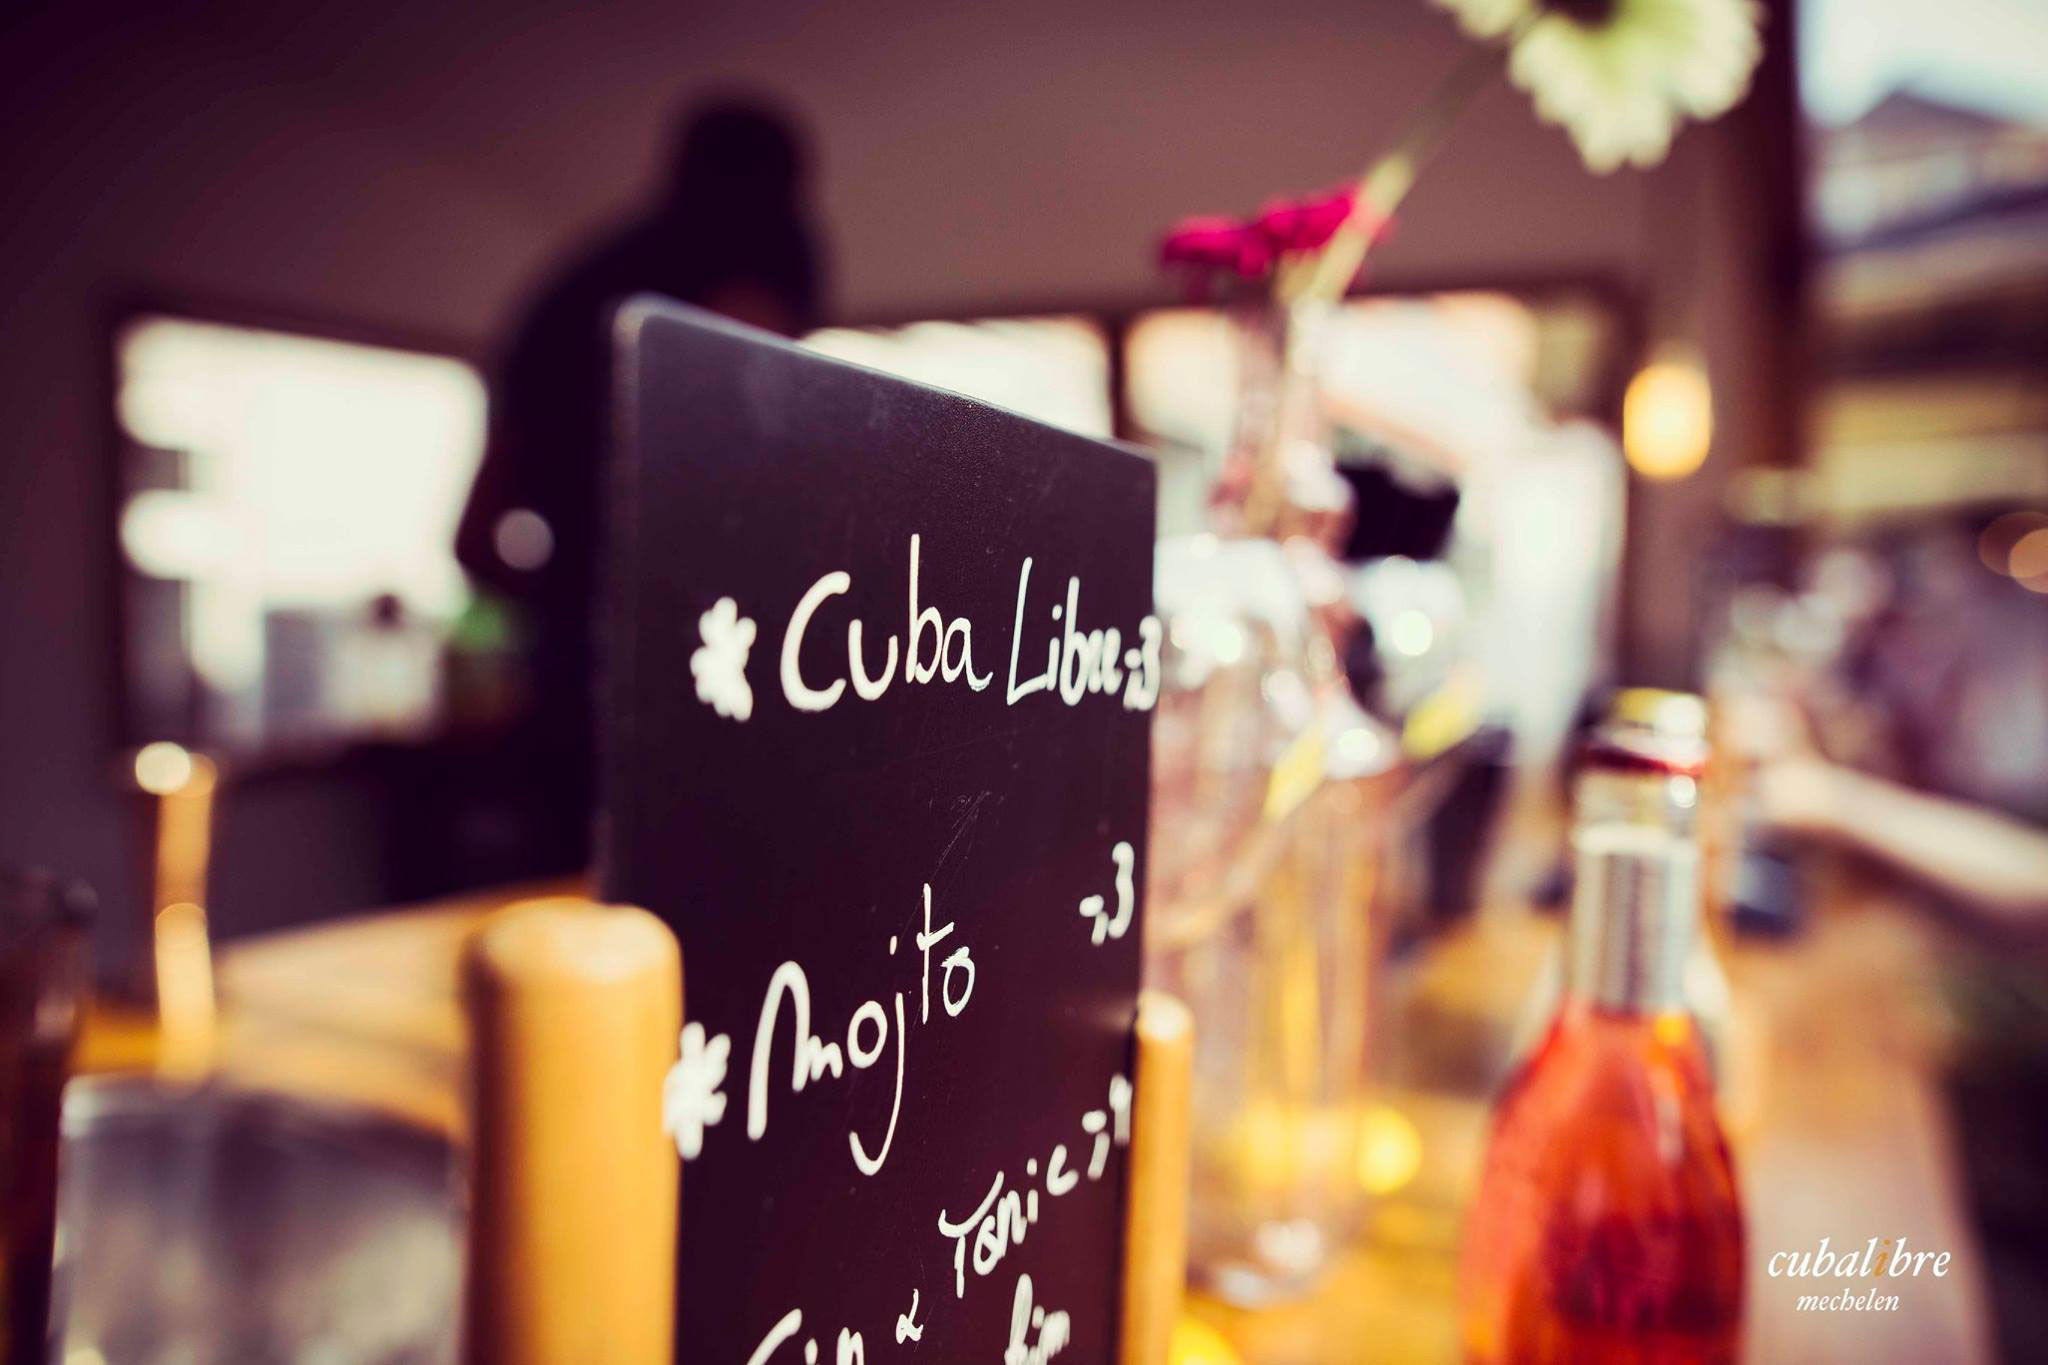 * Cuba Libre :3
* Mojito :3
Gin & Tonic :4
cubalibre
mechelen